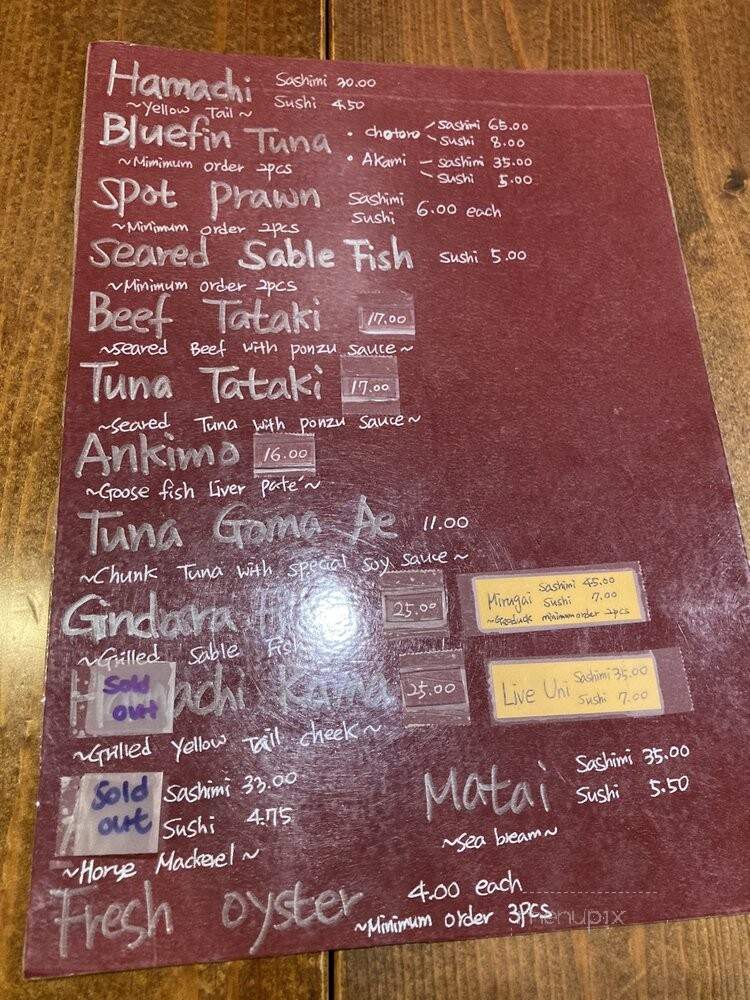 Hamachi Sashimi 30.00
~Yellow Tail~ Sushi 4.50
Bluefin Tuna • chotoro Sashimi 65.00
Sushi 8.00
~Mimimum order 2pcs • Akami Sashimi 35.00
Sushi 5.00
Spot Prawn Sashimi
Sushi 6.00 each
~Minimum order 2pcs
Seared Sable Fish Sushi 5.00
~Minimum order 2pcs
Beef Tataki 17.00
~Seared Beef with ponzu sauce~
Tuna Tataki 17.00
~Seared Tuna with ponzu sauce~
Ankimo 16.00
~Goose fish Liver pate'~
Tuna Goma Ae 11.00
~Chunk Tuna with special soy sauce~
Gindara 25.00
~Grilled Sable Fish
Mirugai Sashimi 45.00
Sushi 7.00
~Geoduck minimum order 2pcs
Sold out Hamachi Kama 25.00
~Grilled Yellow Tail cheek~
Live Uni Sashimi 35.00
Sushi 7.00
Sold out Sashimi 33.00
Sushi 4.75
~Horse Mackerel~
Matai Sashimi 35.00
Sushi 5.50
~Sea bream~
Fresh oyster 4.00 each
~Minimum order 3pcs
menupix